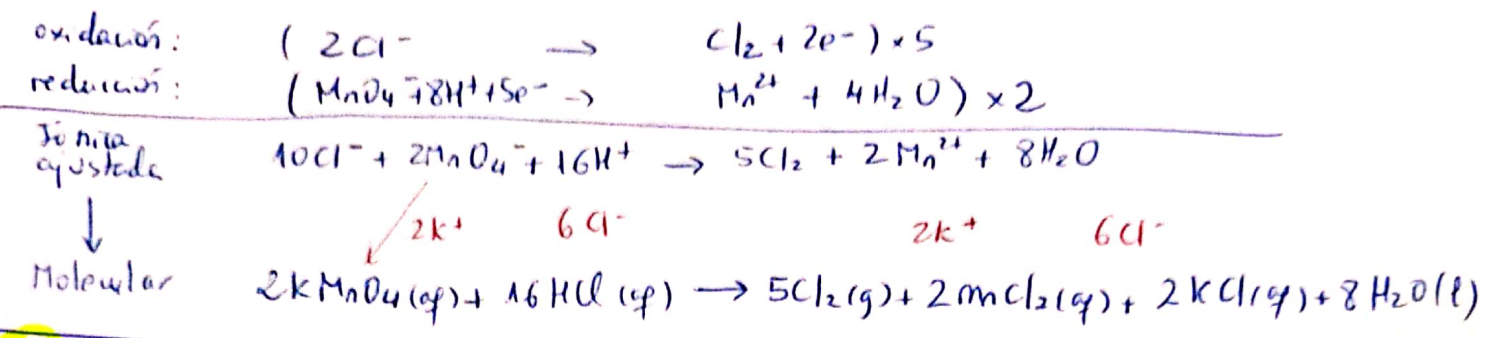 oxidación: ( 2Cl⁻ → Cl₂ + 2e⁻ ) × 5
reducción: ( MnO₄⁻ + 8H⁺ + 5e⁻ → Mn²⁺ + 4H₂O ) × 2
Iónica ajustada 10Cl⁻ + 2MnO₄⁻ + 16H⁺ → 5Cl₂ + 2Mn²⁺ + 8H₂O
↓ 2k⁺ 6Cl⁻ 2k⁺ 6Cl⁻
Molecular 2KMnO₄(aq) + 16HCl(aq) → 5Cl₂(g) + 2mnCl₂(aq) + 2KCl(aq) + 8H₂O(l)